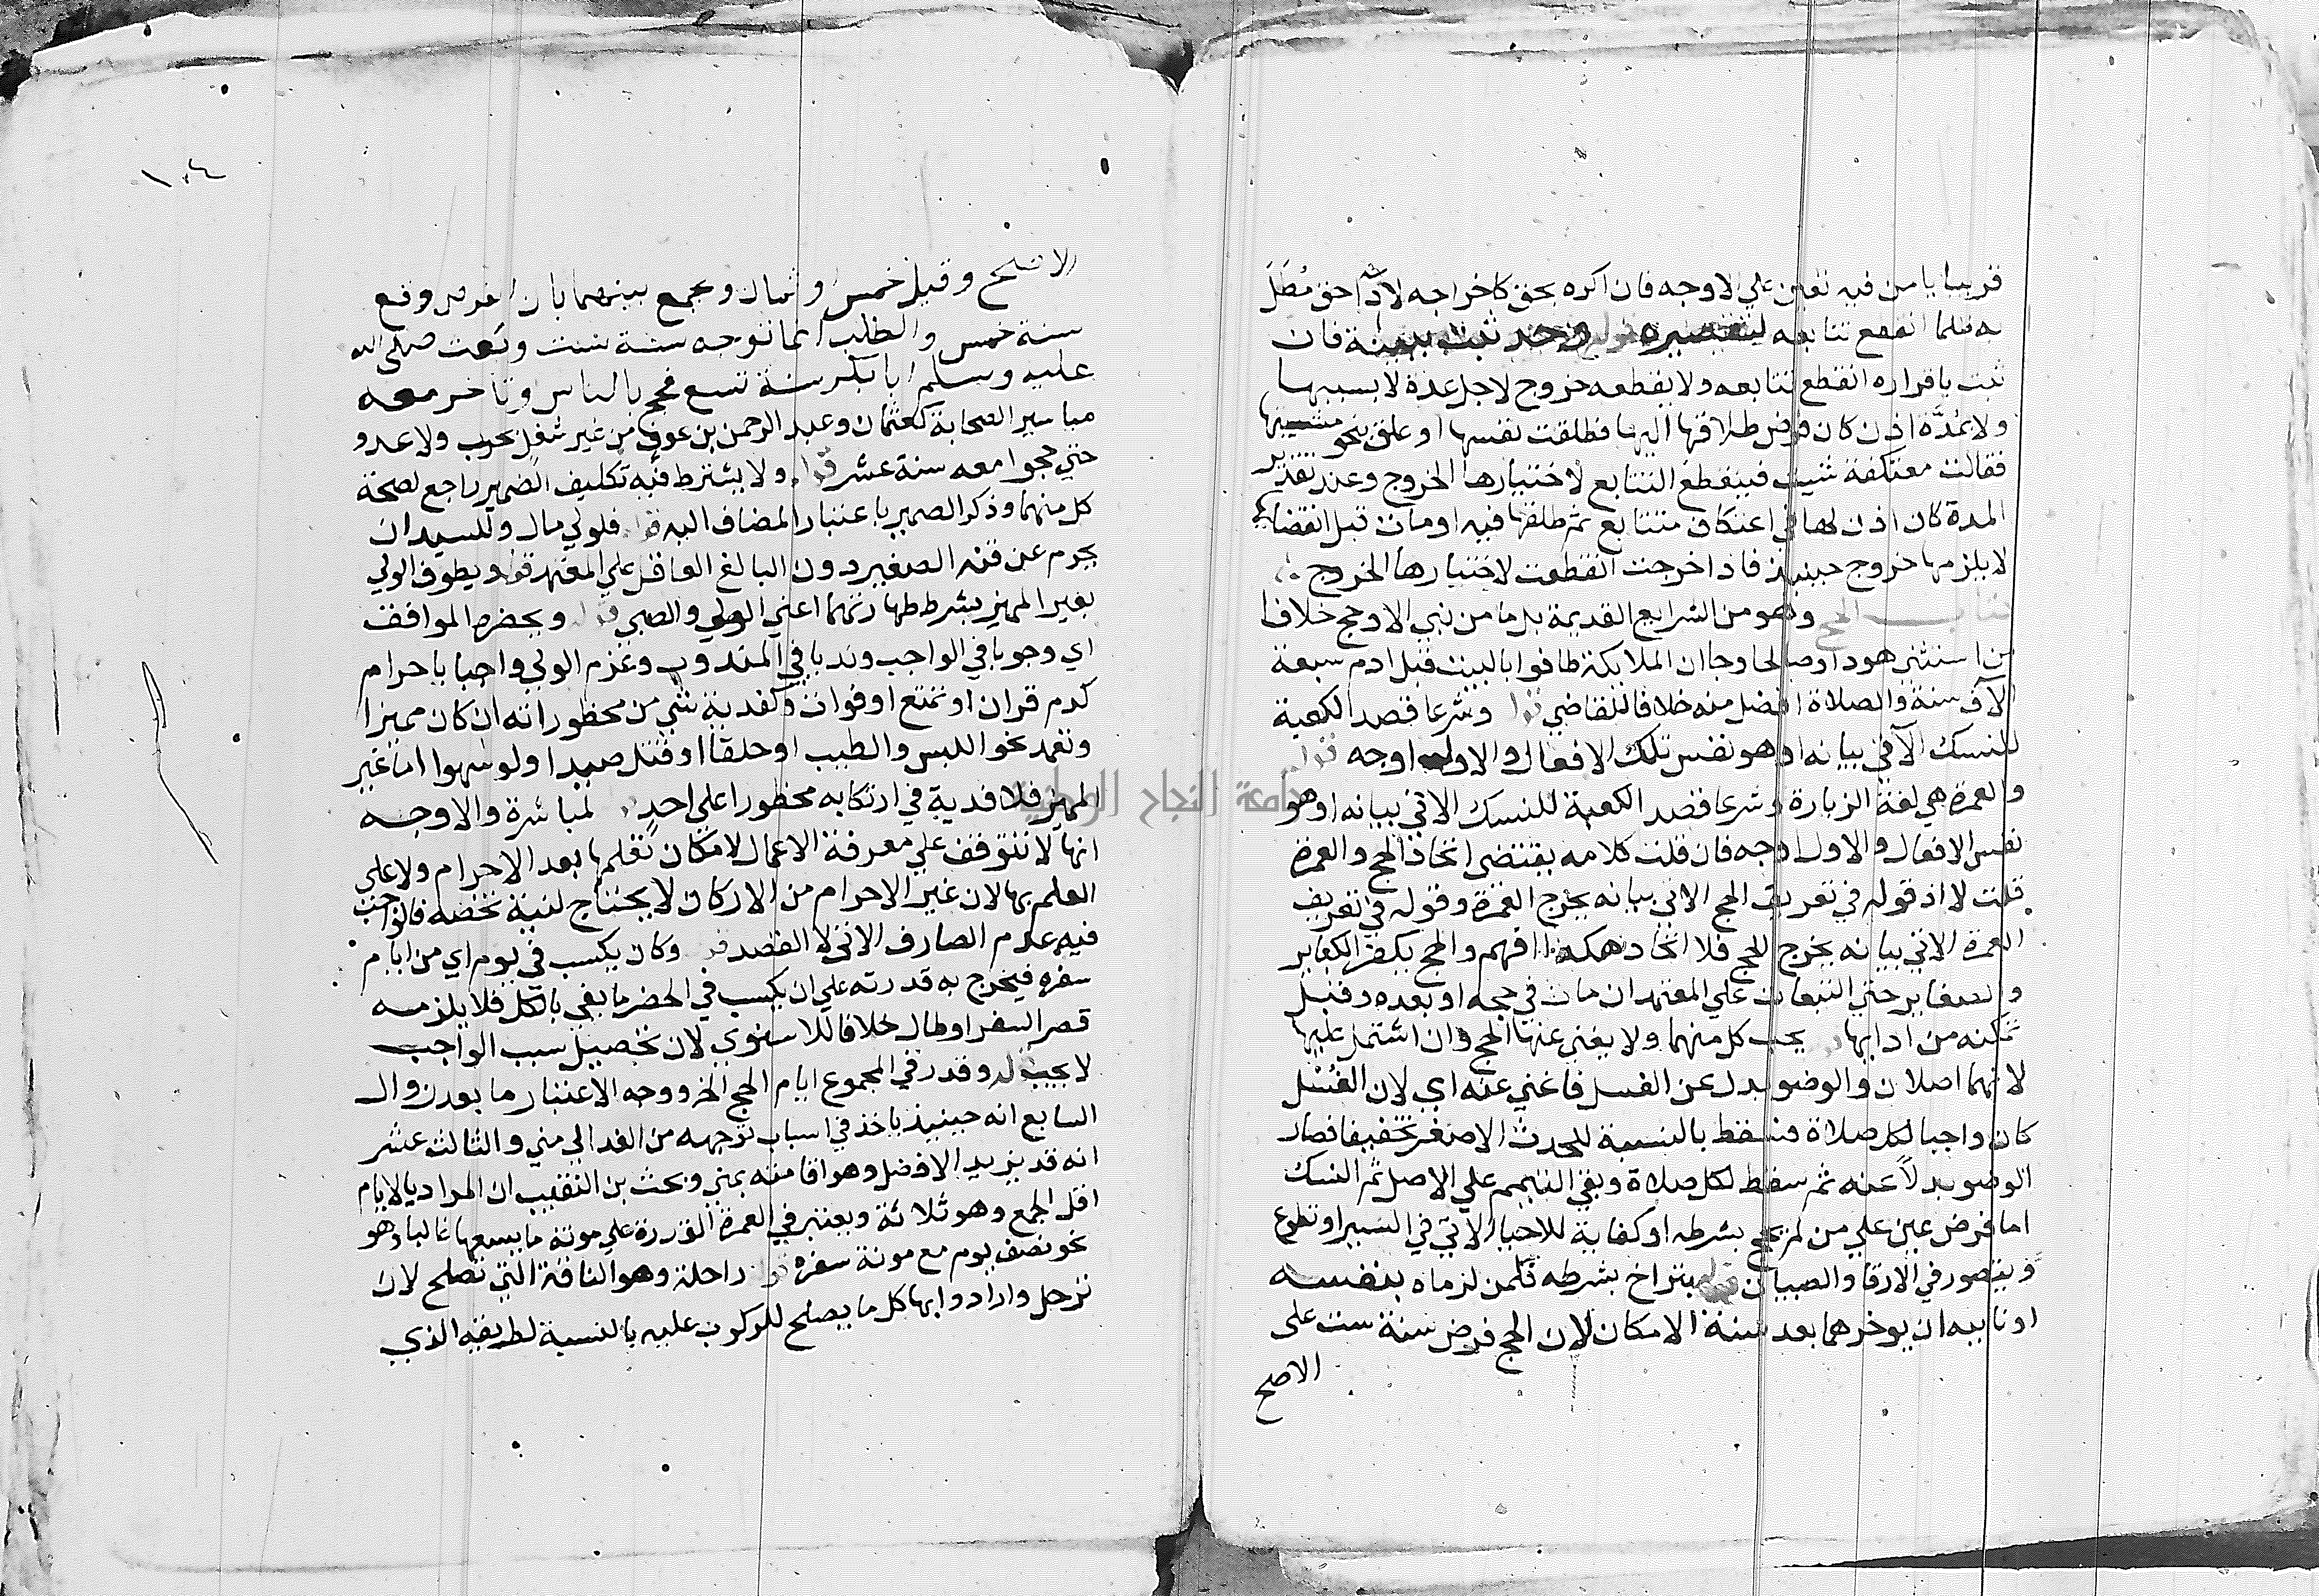 قريبا يامن فيه تعين علي الاوجه فان اكره بحق كاخراجه لاداء حق مطل
به ظلما انقطع تتابعه لتقصيره وحد ثبت ببينة فان
ثبت باقراره انقطع تتابعه ولا يقطعه خروج لاجل عدة لا بسببها
ولا مدة اذن كان فوض طلاقها اليها فطلقت نفسها او علق بنحو مشيتها
فقالت معتكفة شيت فينقطع التتابع لاختيارها الخروج وعند تقدير
المدة كان اذن لها في اعتكاف متتابع ثم طلقها فيه او مات قبل انقضايه
لا يلزمها خروج حينيذ فاذا خرجت انقطعت لاختيارها الخروج
كتاب الحج وهو من الشرايع القديمة بل ما من نبي الا وحج خلافا
لمن استثنى هودا وصالحا وجا ان الملايكة طافوا بالبيت قبل ادم سبعة
الاف سنة والصلاة افضل منه خلافا للقاضي قوله وشرعا قصد الكعبة
للنسك الآتي بيانه او هو نفس تلك الافعال والاول اوجه قوله
والعمرة هي لغة الزيارة وشرعا قصد الكعبة للنسك الاتي بيانه او هو
نفس الافعال والاول اوجه فان قلت كلامه يقتضي اتحاد الحج والعمرة
قلت لا اذ قوله في تعريف الحج الاتي بيانه يخرج العمرة وقوله في تعريف
العمرة الاتي بيانه يخرج للحج فلا اتحاد هكذا افهم والحج يكفر الكباير
والصغاير حتي التبعات علي المعتمد ان مات في حجه او بعده وقبل
تمكنه من ادايها قوله يجب كل منهما ولا يغني عنها الحج وان اشتمل عليها
لانهما اصلان والوضو بدل عن الغسل فاغني عنه اي لان الغسل
كان واجبا لكل صلاة فسقط بالنسبة للحدث الاصغر تخفيفا فصار
الوضو بدلا عنه ثم سقط لكل صلاة وبقي التيمم علي الاصل ثم النسك
اما فرض عين علي من لم يحج بشرطه او كفاية للاحيا الاتي في السير او تطوع
ويتصور في الارقا والصبيان قوله بتراخ بشرطه فلمن لزماه بنفسه
او نايبه ان يوخرهما بعد سنة الامكان لان الحج فرض سنة ست على
الاصح
١٠٤
الاصح وقيل خمس او ثمان ويجمع بينهما بان الفرض وقع
سنة خمس والطلب انما توجه سنة ست وبعث صلى الله
عليه وسلم ابا بكر سنة تسع فحج بالناس وتاخر معه
مياسير الصحابة كعثمان وعبد الرحمن بن عوف من غير شغل بحرب ولا عدو
حتي حجوا معه سنة عشر قوله ولا يشترط فيه تكليف الضمير راجع لصحة
كل منهما وذكر الضمير باعتبار المضاف اليه قوله فلولي مال وللسيد ان
يحرم عن قنه الصغير دون البالغ العاقل علي المعتمد قوله ويطوف الولي
بغير المميز بشرط طهارتهما اعني الولي والصبي قوله ويحضره المواقف
اي وجوبا في الواجب وندبا في المندوب وغرم الولي واجبا باحرام
كدم قران او تمتع او فوات وكفدية شي من محظوراته ان كان مميزا
وتعمد نحو اللبس والطيب او حلقا او قتل صيدا ولو سهوا اما غير
المميز فلا فدية في ارتكابه محظورا علي احد قوله لمباشرة والاوجه
انها لا تتوقف علي معرفة الاعمال لامكان تعلمها بعد الاحرام ولا علي
العلم بها لان غير الاحرام من الاركان لا يحتاج لنية تخصه فالواجب
فيه عدم الصارف الاتي لا القصد قوله وكان يكسب في يوم اي من ايام
سفره فيخرج به قدرته علي ان يكسب في الحضر ما يفي بالكل فلا يلزمه
قصر السفر او طال خلافا للاسنوي لان تحصيل سبب الواجب
لا يجب قوله وقدر في المجموع ايام الحج الخ ووجه الاعتبار ما بعد زوال
السابع انه حينيذ ياخذ في اسباب توجهه من الغد الي مني والثالث عشر
انه قد يزيد الافضل وهو اقامته بمني وبحث بن النقيب ان المراد بالايام
اقل الجمع وهو ثلاثة ويعتبر في العمرة القدرة علي مونة ما يسعها غالبا وهو
نحو نصف يوم مع مونة سفره قوله راحلة وهو الناقة التي تصلح لان
ترحل وارادوا بها كل ما يصلح للركوب عليه بالنسبة لطريقه الذي
جامعة النجاح الوطنية